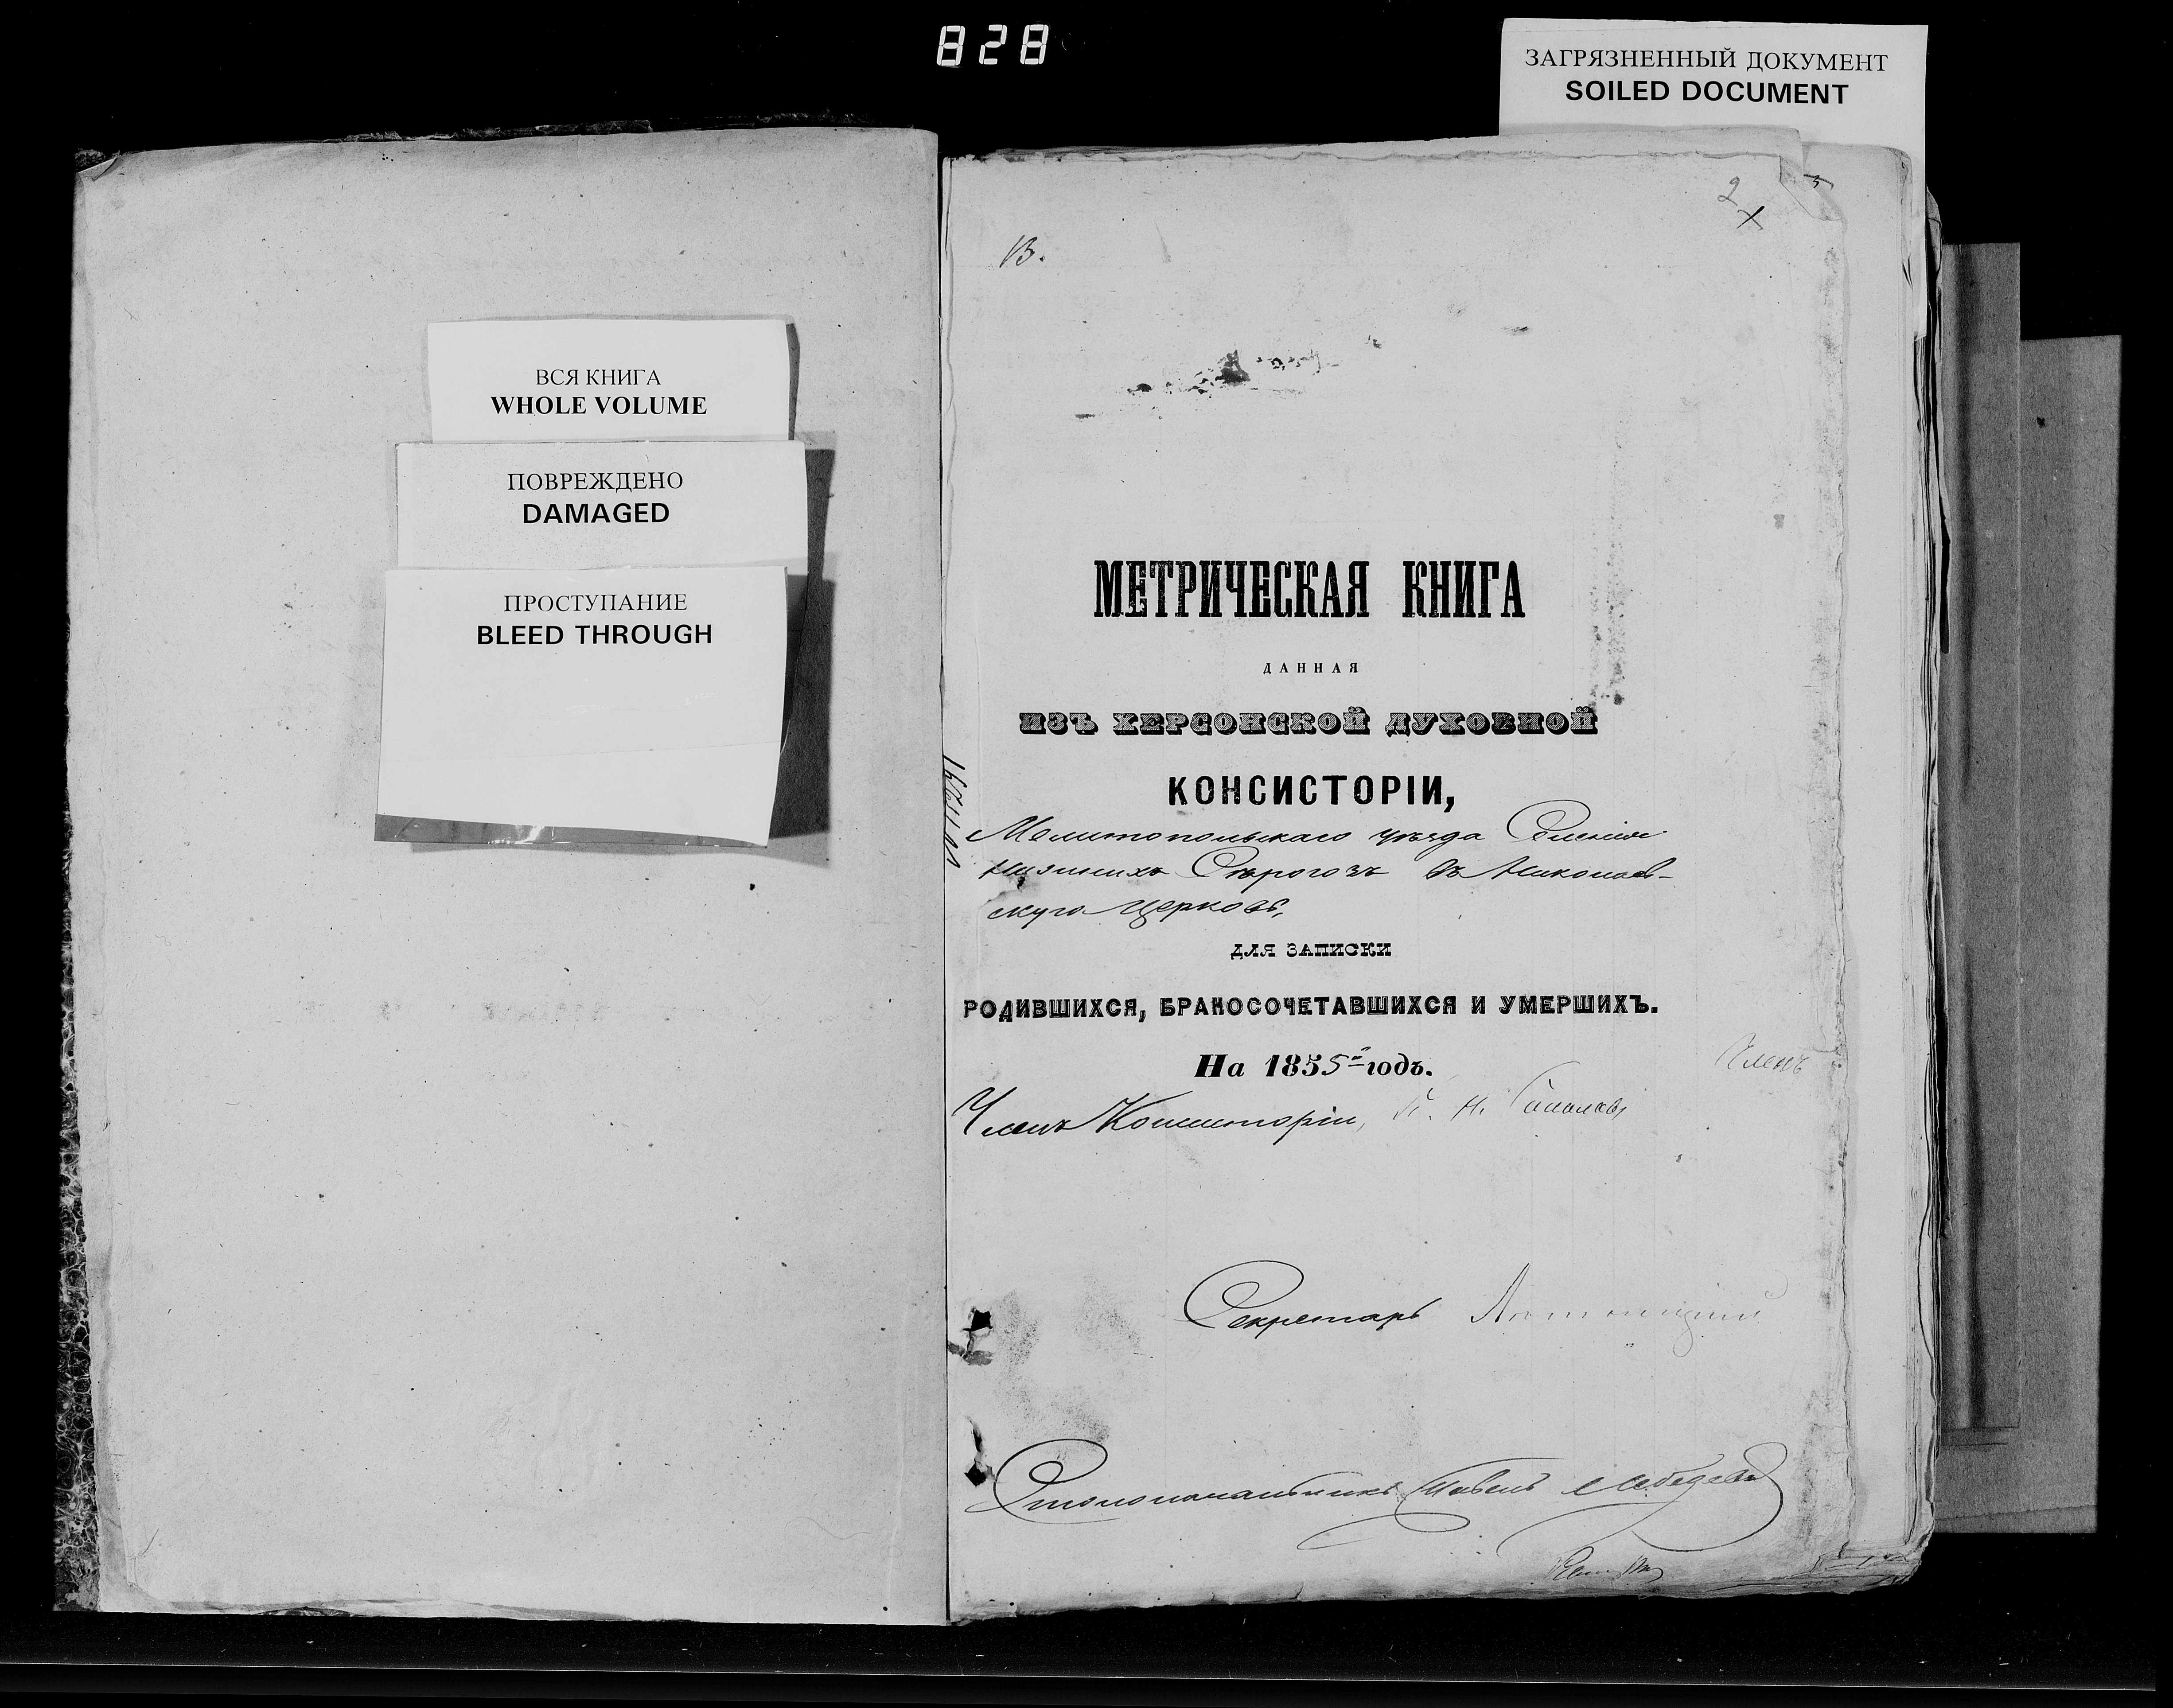 828
ЗАГРЯЗНЕННЫЙ ДОКУМЕНТ
SOILED DOCUMENT
ВСЯ КНИГА
WHOLE VOLUME
ПОВРЕЖДЕНО
DAMAGED
ПРОСТУПАНИЕ
BLEED THROUGH
2
В.
МЕТРИЧЕСКАЯ КНИГА
ДАННАЯ
ИЗЪ ХЕРСОНСКОЙ ДУХОВНОЙ
КОНСИСТОРІИ,
Мелитопольскаго уѣзда Селенія
Нижнихъ Сѣрогозъ въ Николаев-
скую Церковь,
ДЛЯ ЗАПИСКИ
РОДИВШИХСЯ, БРАКОСОЧЕТАВШИХСЯ И УМЕРШИХЪ.
На 1855й годъ.
Членъ
Членъ Консисторіи,
Секретарь
Столоначальникъ Павелъ Лебедевъ